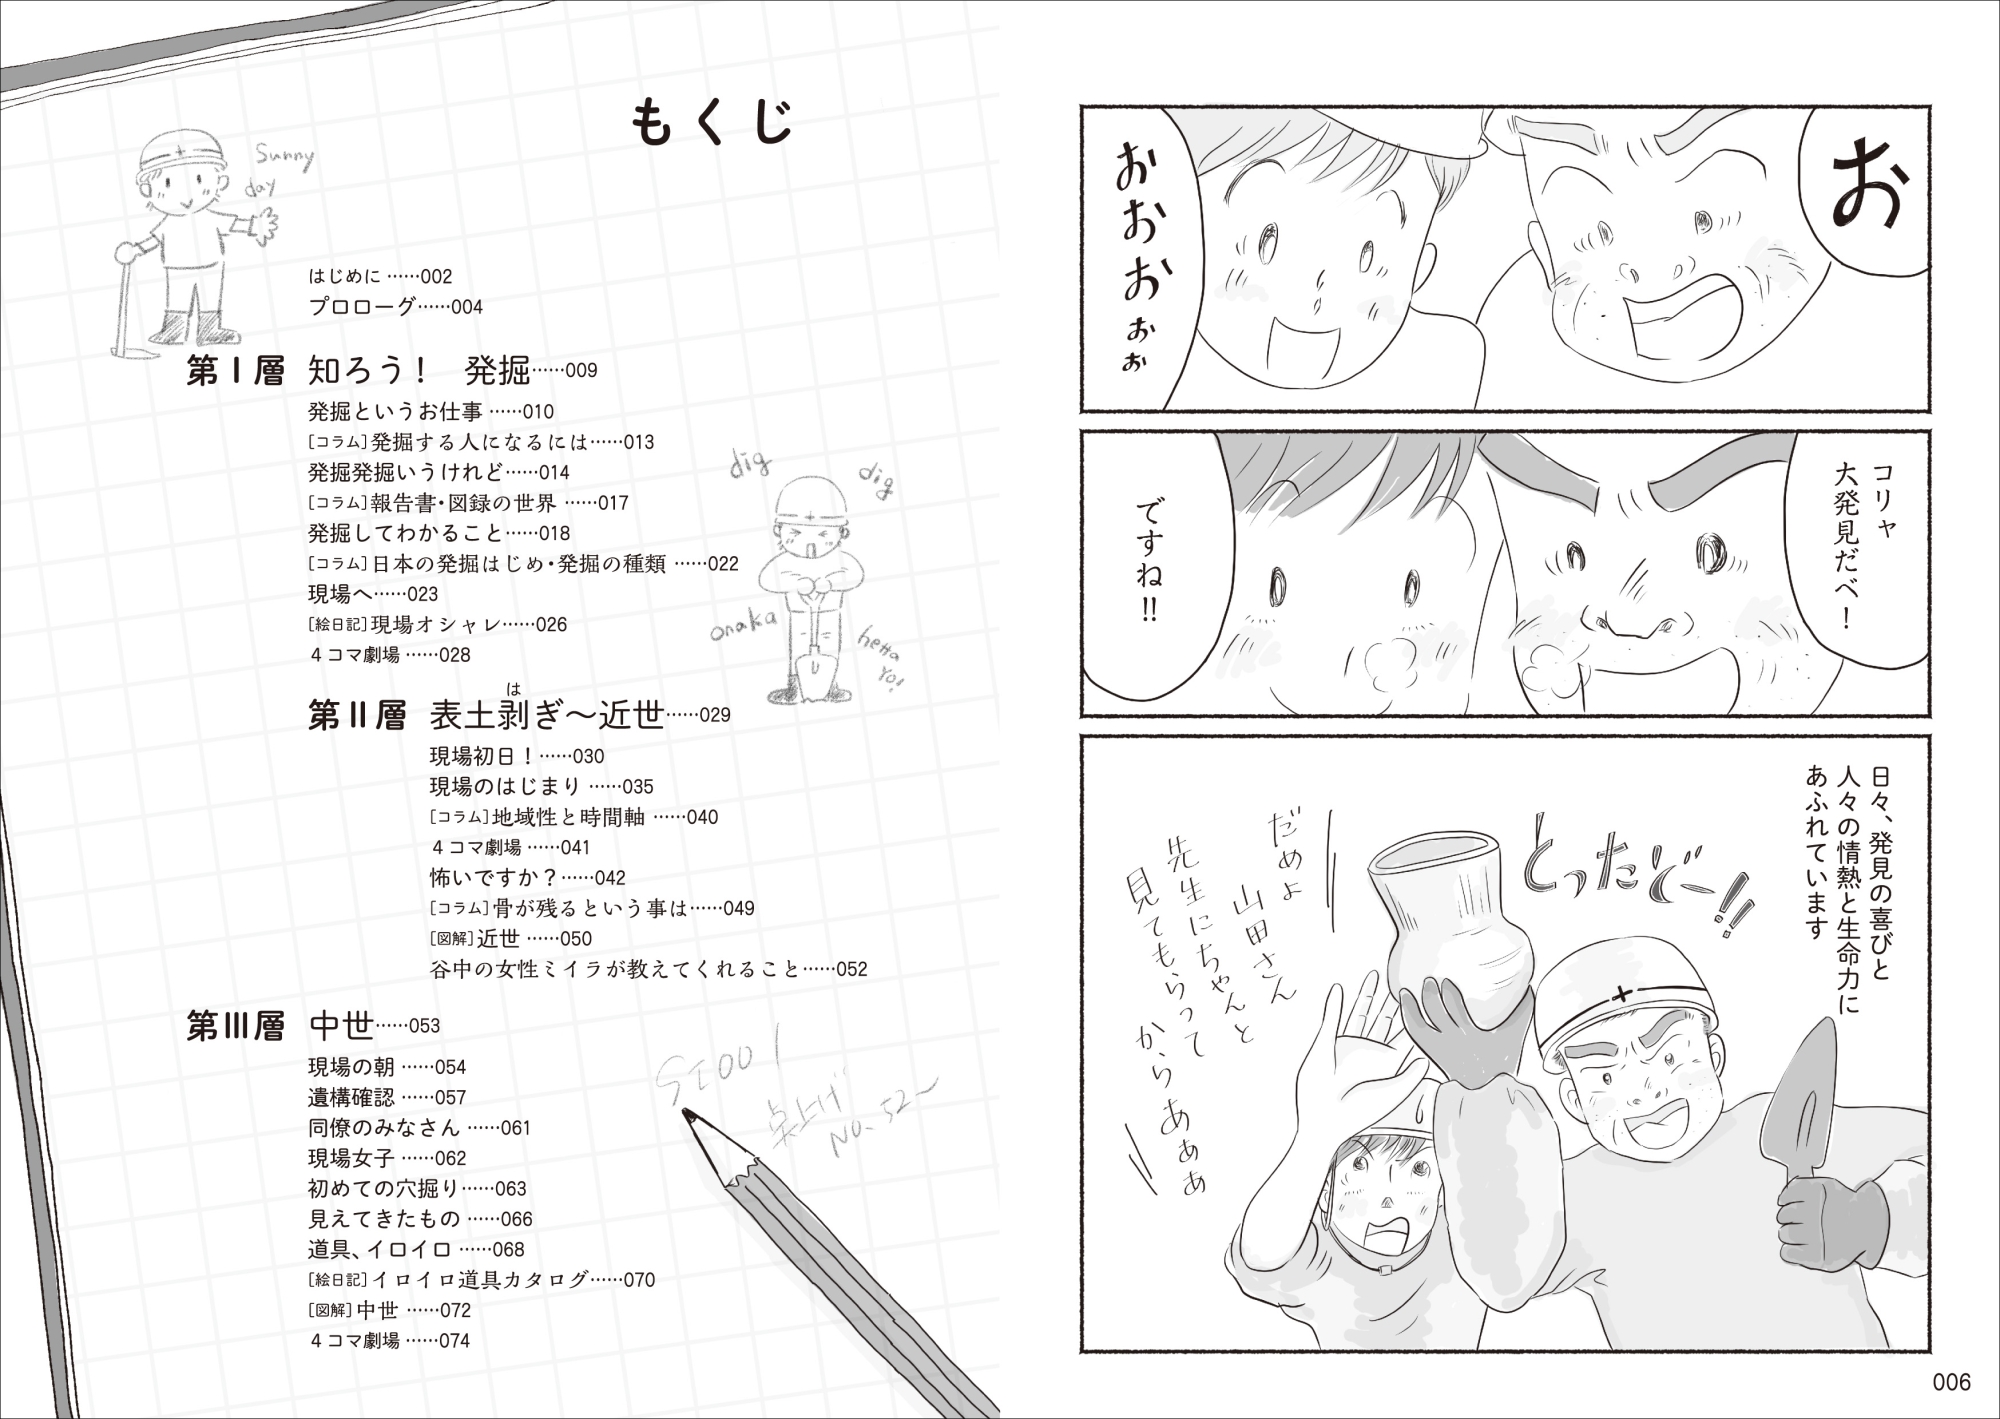 お
おおおぉぉ
コリャ
大発見だべ！
ですね!!
日々、発見の喜びと
人々の情熱と生命力に
あふれています
とったどー!!
だめよ
山田さん
先生にちゃんと
見てもらって
からあぁぁ
006
もくじ
Sunny
day
はじめに ……002
プロローグ……004
第Ⅰ層 知ろう！ 発掘……009
発掘というお仕事 ……010
［コラム］発掘する人になるには……013
発掘発掘いうけれど……014
［コラム］報告書・図録の世界 ……017
発掘してわかること……018
［コラム］日本の発掘はじめ・発掘の種類 ……022
現場へ……023
［絵日記］現場オシャレ……026
４コマ劇場 ……028
dig
dig
onaka
hetta
yo!
は
第Ⅱ層 表土剥ぎ〜近世……029
現場初日！……030
現場のはじまり ……035
［コラム］地域性と時間軸 ……040
４コマ劇場 ……041
怖いですか？……042
［コラム］骨が残るという事は……049
［図解］近世 ……050
谷中の女性ミイラが教えてくれること……052
第Ⅲ層 中世……053
現場の朝 ……054
遺構確認 ……057
同僚のみなさん ……061
現場女子 ……062
初めての穴掘り……063
見えてきたもの ……066
道具、イロイロ ……068
［絵日記］イロイロ道具カタログ……070
［図解］中世 ……072
４コマ劇場 ……074
SI001
点上げ
No.52〜